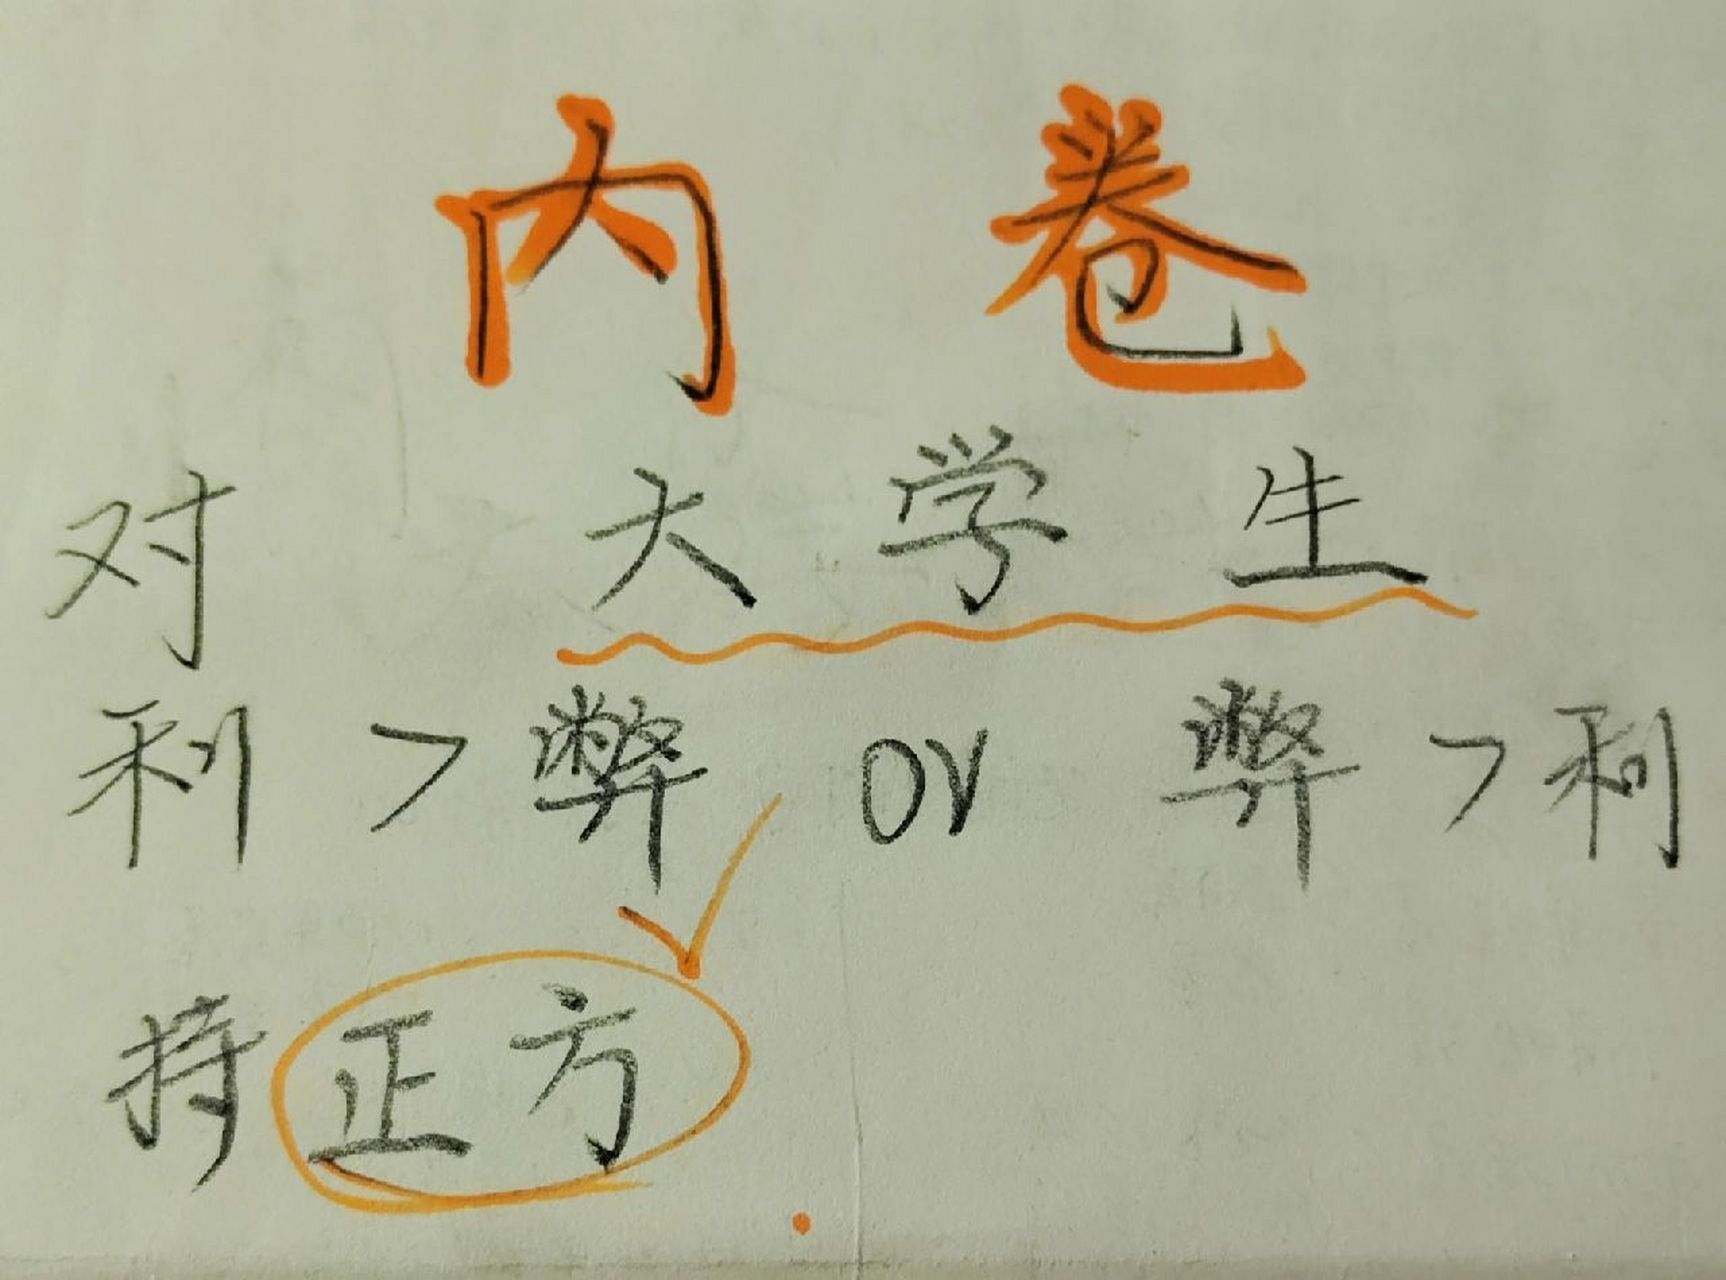 内卷
对 大学生
利 > 弊 or 弊 > 利
持正方